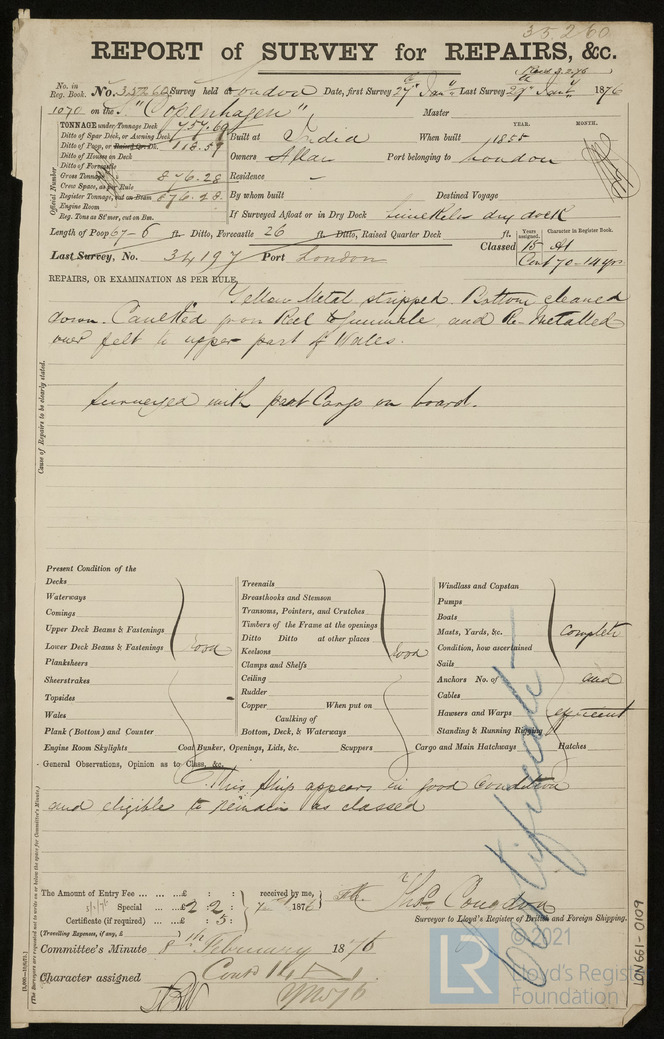 35260
REPORT of SURVEY for REPAIRS, &c.
No. in Reg. Book. No. 35260 Survey held at London Date, first Survey 27th Jany Last Survey 29th Jany 1876
1070 on the "Copenhagen" Master
TONNAGE under Tonnage Deck 757.69
Ditto of Spar Deck, or Awning Deck
Ditto of Poop, or Raised Qr. Dk. 118.59
Ditto of Houses on Deck
Ditto of Forecastle
Gross Tonnage 876.28
Crew Space, as per Rule
Register Tonnage, cut on Beam 876.28
Engine Room
Reg. Tons as St'mer, cut on Bm.
Official Number
YEAR. MONTH.
Built at India When built 1855
Owners Allan Port belonging to London
Residence -
By whom built Destined Voyage
If Surveyed Afloat or in Dry Dock dry dock
Length of Poop 67-6 ft. Ditto, Forecastle 26 ft. Ditto, Raised Quarter Deck ft.
Years assigned. Character in Register Book.
Classed 15 A1
Cont 70-14 yrs
Last Survey, No. 34197 Port London
REPAIRS, OR EXAMINATION AS PER RULE,
Yellow Metal stripped. Bottom cleaned
down. Caulked from Keel to gunwale and Re-metalled
over felt to upper part of Wales.
Surveyed with part Cargo on board.
Cause of Repairs to be clearly stated.
Present Condition of the
Decks
Waterways
Comings
Upper Deck Beams & Fastenings
Lower Deck Beams & Fastenings Good
Planksheers
Sheerstrakes
Topsides
Wales
Plank (Bottom) and Counter
Engine Room Skylights Coal Bunker, Openings, Lids, &c. Scuppers Cargo and Main Hatchways Hatches
Treenails
Breasthooks and Stemson
Transoms, Pointers, and Crutches
Timbers of the Frame at the openings
Ditto Ditto at other places
Keelsons Good
Clamps and Shelfs
Ceiling
Rudder
Copper When put on
Caulking of
Bottom, Deck, & Waterways
Windlass and Capstan
Pumps
Boats
Masts, Yards, &c. Complete
Condition, how ascertained
Sails
Anchors No. of and
Cables
Hawsers and Warps efficient
Standing & Running Rigging
General Observations, Opinion as to Class, &c.
This Ship appears in good Condition
and eligible to remain as classed
Certificate
The Amount of Entry Fee £ : :
Special £2 : 2 :
Certificate (if required) : 5 :
(Travelling Expenses, if any, £ )
received by me,
1876
Thos. Congdon
Surveyor to Lloyd's Register of British and Foreign Shipping.
Committee's Minute 8th February 1876
Character assigned Cont 14
(The Surveyors are requested not to write on or below the space for Committee's Minute.)
LON661-0109
LR
©2021
Lloyd's Register
Foundation